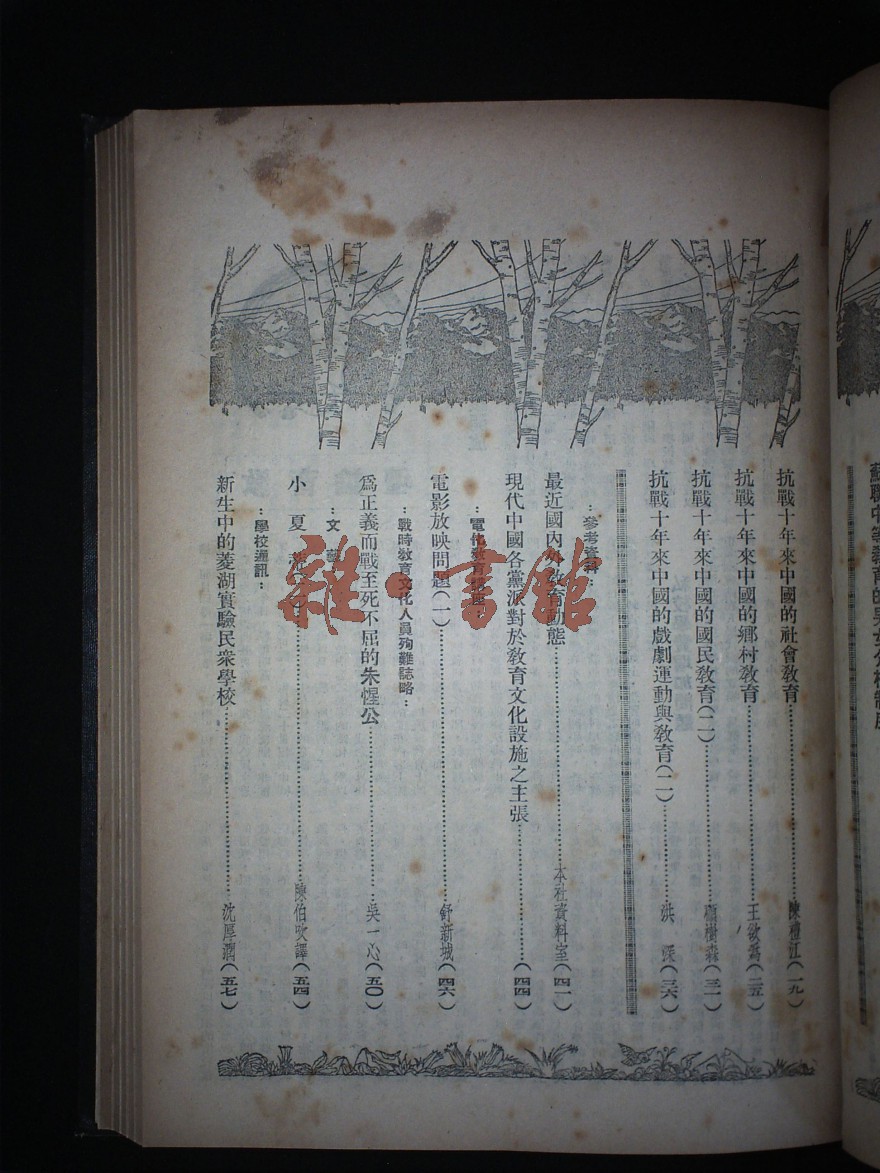 抗戰十年來中國的社會教育………陳禮江(一九)
抗戰十年來中國的鄉村教育………王欲為(二五)
抗戰十年來中國的國民教育(二)………樹森(三一)
抗戰十年來中國的戲劇運動與教育(二)………洪深(三六)
：參考資料：
最近國內外教育動態………本社資料室(四一)
現代中國各黨派對於教育文化設施之主張………(四四)
：電化教育
電影放映問題(一)………舒新城(四六)
：戰時教育文化人員殉難誌略：
為正義而戰至死不屈的朱惺公………吳一心(五〇)
：文
小夏………陳伯吹譯(五四)
：學校通訊：
新生中的菱湖實驗民衆學校………沈厚潤(五七)
雜·書館